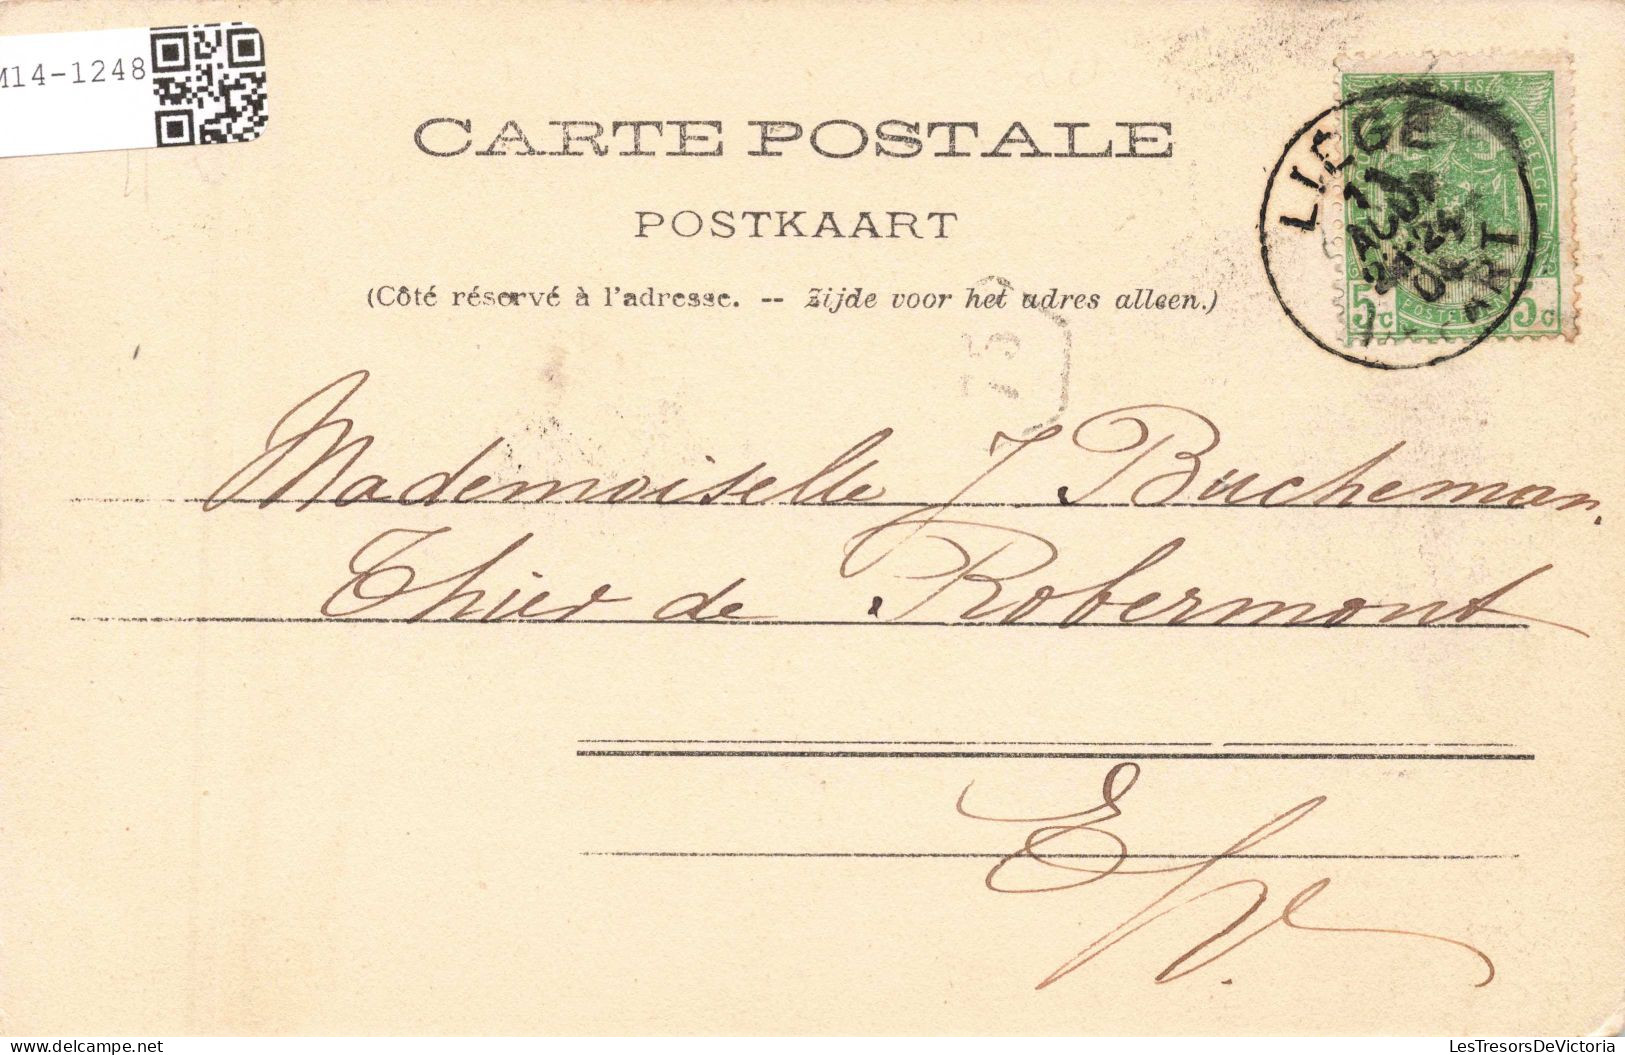 M14-1248
CARTE POSTALE
POSTKAART
(Côté réservé à l'adresse. -- Zijde voor het adres alleen.)
LIEGE
11
AOUT
5 c
5 c
75
Mademoiselle J Bucheman.
Thier de Robermont
E/V.
LesTresorsDeVictoria